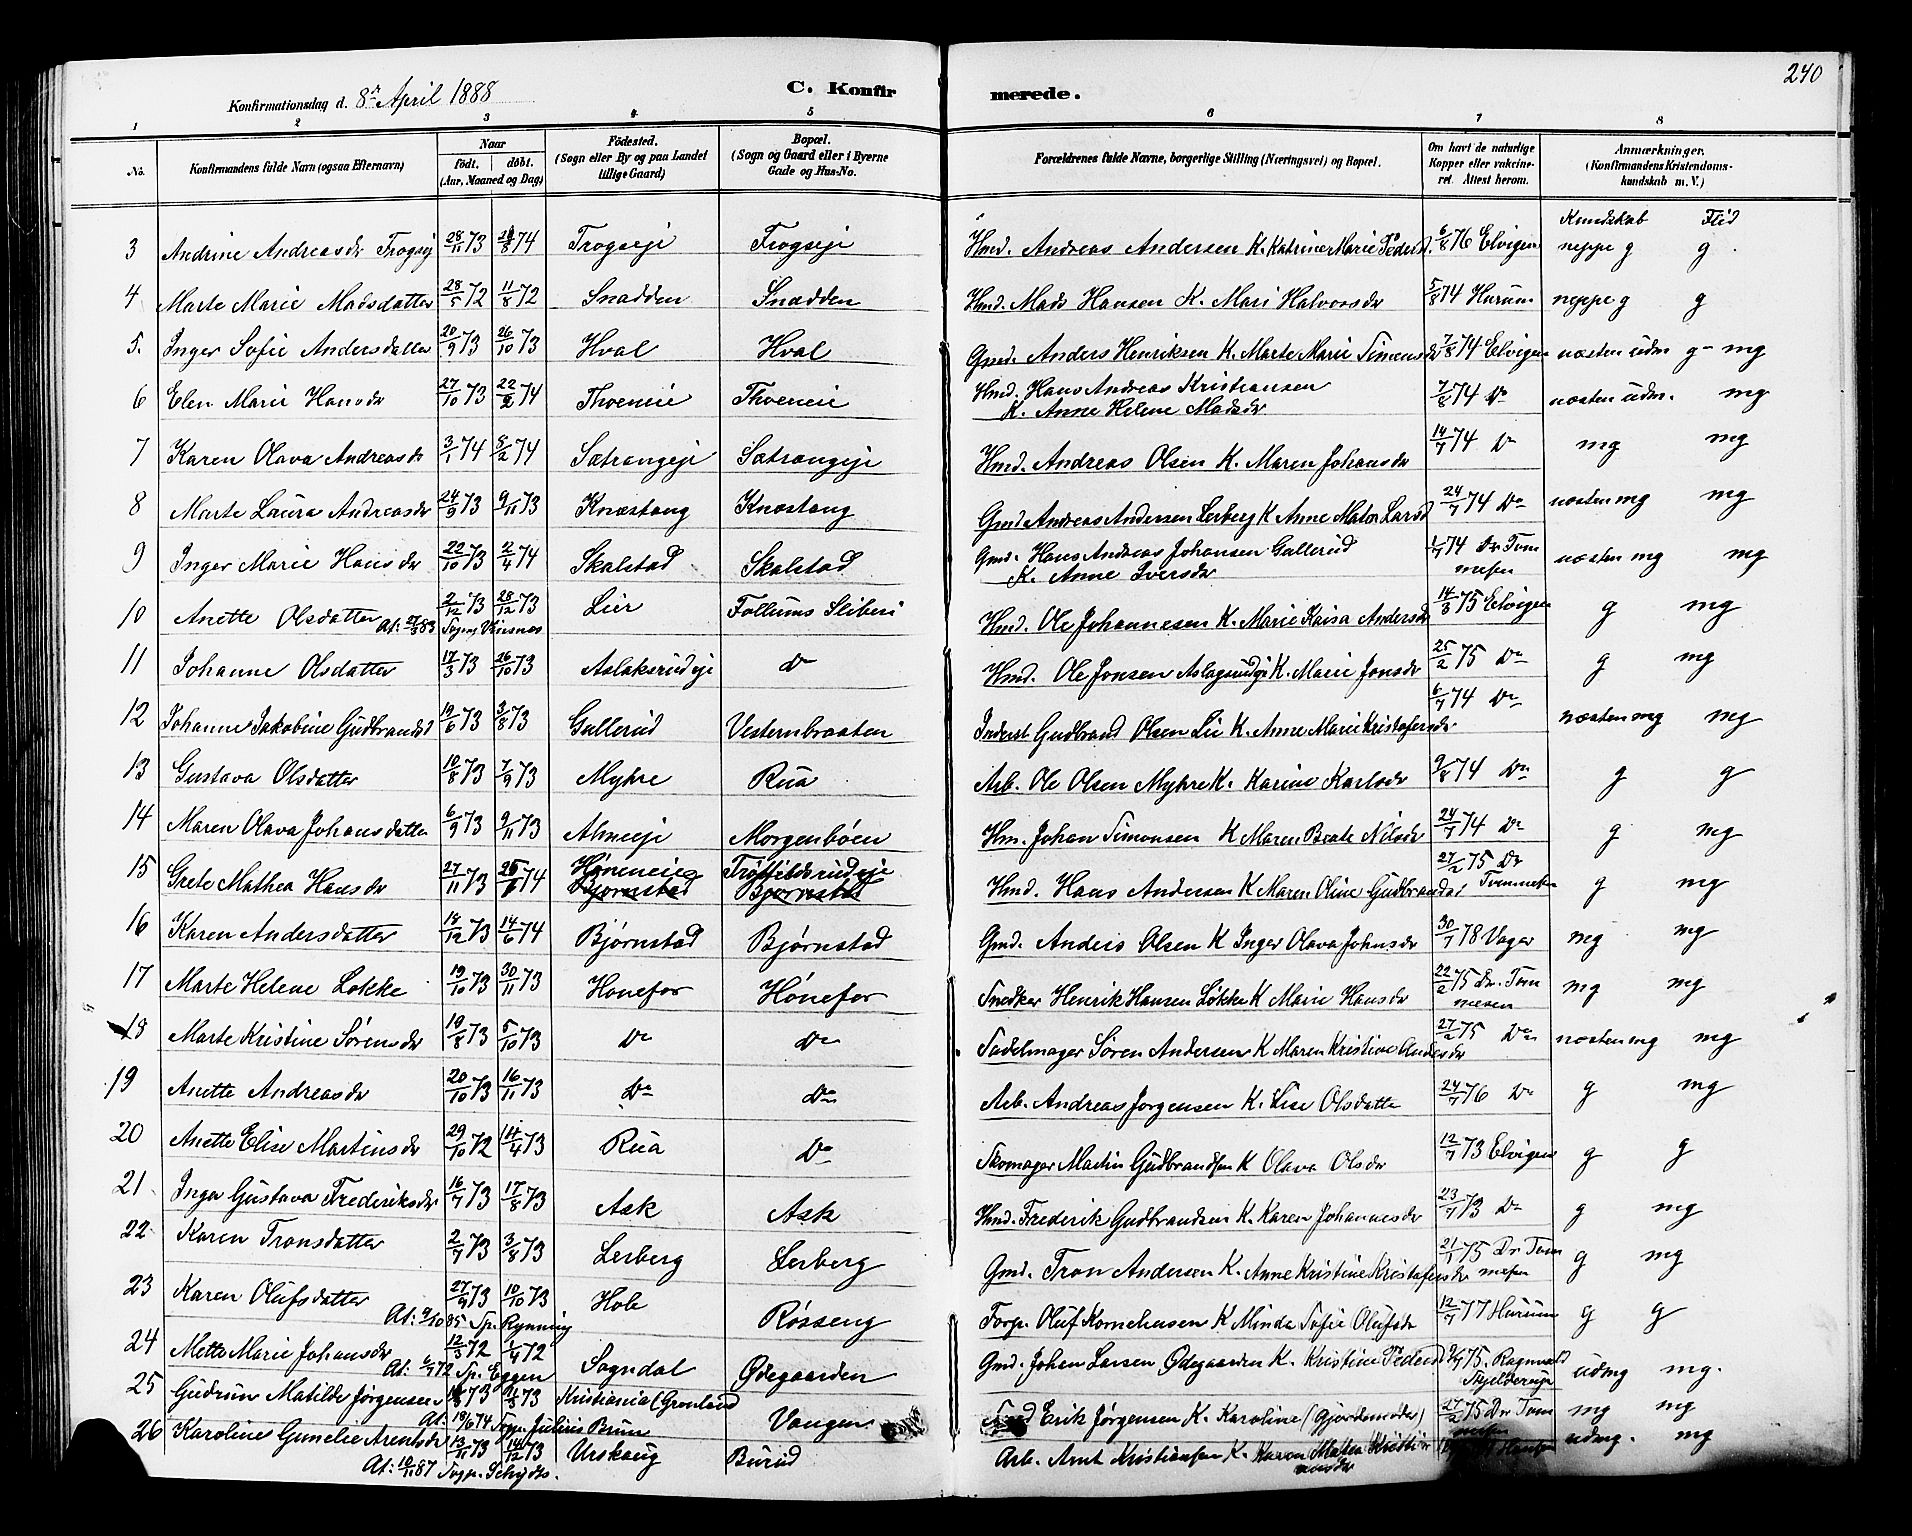 240
Konfirmationsdag d. 8de April 1888
C. Konfirmerede.
1 2 3 4 5 6 7 8
No. | Konfirmandens fulde Navn (ogsaa Efternavn) | Naar født. døbt. (Aar, Maaned og Dag) | Födested. (Sogn eller By og paa Landet tillige Gaard) | Bopæl. (Sogn og Gaard eller i Byerne Gade og Hus-No. | Forældrenes fulde Navne, borgerlige Stilling (Næringsvei) og Bopæl. | Om havt de naturlige Kopper eller vakcineret. Attest herom. | Anmærkninger. (Konfirmandens Kristendomskundskab m. V.)
Kundskab Flid
3 Andrine Andreasdr Frogseij 28/11 73 /8 74 Frogseje Frogseje Hmd. Andreas Andersen K. Katrine Marie Pedersd. 6/8 76 Elvigen neppe g g
4 Marte Marie Madsdatter 28/5 72 11/8 72 Snadden Snadden Hmd. Mads Hansen K. Mari Halvorsdr 5/8 74 Hurum neppe g g
5. Inger Sofie Andersdatter 20/9 73 26/10 73 Hval Hval Gmd. Anders Henriksen K. Marte Marie Simensdr 7/8 74 Elvigen næsten udm g- mg
6 Elen Marie Hansdr 27/10 73 22/2 74 Thoeneie Thoeneie Hmd. Hans Andreas Kristiansen K. Anne Helene Madsdr 7/8 74 Do næsten udm. mg
7 Karen Olava Andreasdr 3/1 74 8/2 74 Sætrangeje Sætrangeje Hmd. Andreas Olsen K. Maren Johansdr 14/7 74 Do mg mg
8 Marte Laura Andreasdr 24/9 73 9/11 73 Knæstang Knæstang Gmd Andreas Andersen Lerberg K Anne Mator Larsd 24/7 74 Do næsten mg mg
9 Inger Marie Hansdr 22/10 73 2/4 74 Skalstad Skalstad Gmd. Hans Andreas Johansen Gullerud K. Anne Iversdr 1/7 74 Dr Tommesen næsten mg mg
10 Anette Olsdatter 2/12 73 28/12 73 Lier Follums Sliberi Hmd. Ole Johannesen K. Marie Kaisa Andersd 14/3 75 Elvigen g mg
At: 27/3 83 Sogpr Vinsnes
11 Johanne Olsdatter 17/3 73 26/10 73 Aslaksrudeje Do Hmd. Ole Jonsen Aslagsrudeje K. Marie Jonsdr 25/2 75 Do g mg
12 Johanne Jakobine Gudbrandsd 19/6 73 3/8 73 Gullerud Vesternbraaten Inderst Gudbrand Olsen Lie K. Anne Marie Kristofersdr 6/7 74 Do næsten mg mg
13 Gustava Olsdatter 10/8 73 7/9 73 Myhre Rua Arb. Ole Olsen Myhre K. Karine Karlsdr 9/8 74 Do g g
14 Maren Olava Johansdatter 6/9 73 9/11 73 Almeeje Morgenbøen Hm. Johan Simonsen K Maren Beate Nilsdr 24/7 74 Do g mg
15 Grete Mathea Hansdr 27/11 73 25/6 74 Høneneie Bjørnstad Trøffildsrudeje Bjørnstad Hmd. Hans Andersen K Maren Oline Gudbrandsd 27/2 75 Dr Tommesen g mg
16 Karen Andersdatter 18/12 73 14/6 74 Bjørnstad Bjørnstad Gmd. Anders Olsen K Inger Olava Johnsdr 30/7 78 Vager mg mg
17 Marte Helene Løkke 19/10 73 30/11 73 Hønefos Hønefos Snedker Henrik Hansen Løkke K Marie Hansdr 22/2 75 Dr. Tommesen mg mg
18 Marte Kristine Sørensdr 19/8 73 5/10 73 Do Do Sadelmager Søren Andersen K Maren Kristine Andersdr 27/2 75 Do næsten mg mg
19 Anette Andreasdr 20/10 73 16/11 73 Do Do Arb. Andreas Jørgensen K. Lise Olsdatter 24/7 76 Do g mg
20 Anette Elise Martinsdr 29/10 72 14/4 73 Rua Do Skomager Martin Gudbrandsen K Olava Olsdr 12/7 73 Elvigen g g
21 Inga Gustava Frederiksdr 16/7 73 17/8 73 Ask Ask Hmd. Frederik Gudbrandsen K. Karen Johannesdr 23/7 73 Do g mg
22 Karen Tronsdatter 2/7 73 3/8 73 Lerberg Lerberg Gmd. Tron Andersen K. Anne Kristine Kristofersdr 21/1 75 Dr Tommesen g mg
23 Karen Olufsdatter 27/9 73 10/10 73 Hole Røsseng Forp. Oluf Korneliusen K Minda Sofie Olufsdr 12/7 77 Hurum g g
At: 9/10 85 Sp. Rynning
24 Mette Marie Johansdr 12/3 72 1/4 72 Sogndal Ødegaarden Gmd. Johan Larsen Ødegaarden K. Kristine Pedersd 9/7 75. Ragnvald Skjelderup udmg mg.
At: 72 Sp. Eggen
25 Gudrun Matilde Jørgensen 73 73 Kristiania (Grønland Vangen Erik Jørgensen K. Karoline (Gjordemoder) 27/2 75 Dr Tommesen mg mg
At: 19/6 74 Sogpr. Julius Bruun
26 Karoline Gunelie Arentsdr 13/11 73 14/12 73 Urskoug Burud Arb. Arnt Kristiansen K. Karen Mattea Kristiansdr udmg. mg
At: 10/11 87 Sogpr. Schiøtz.